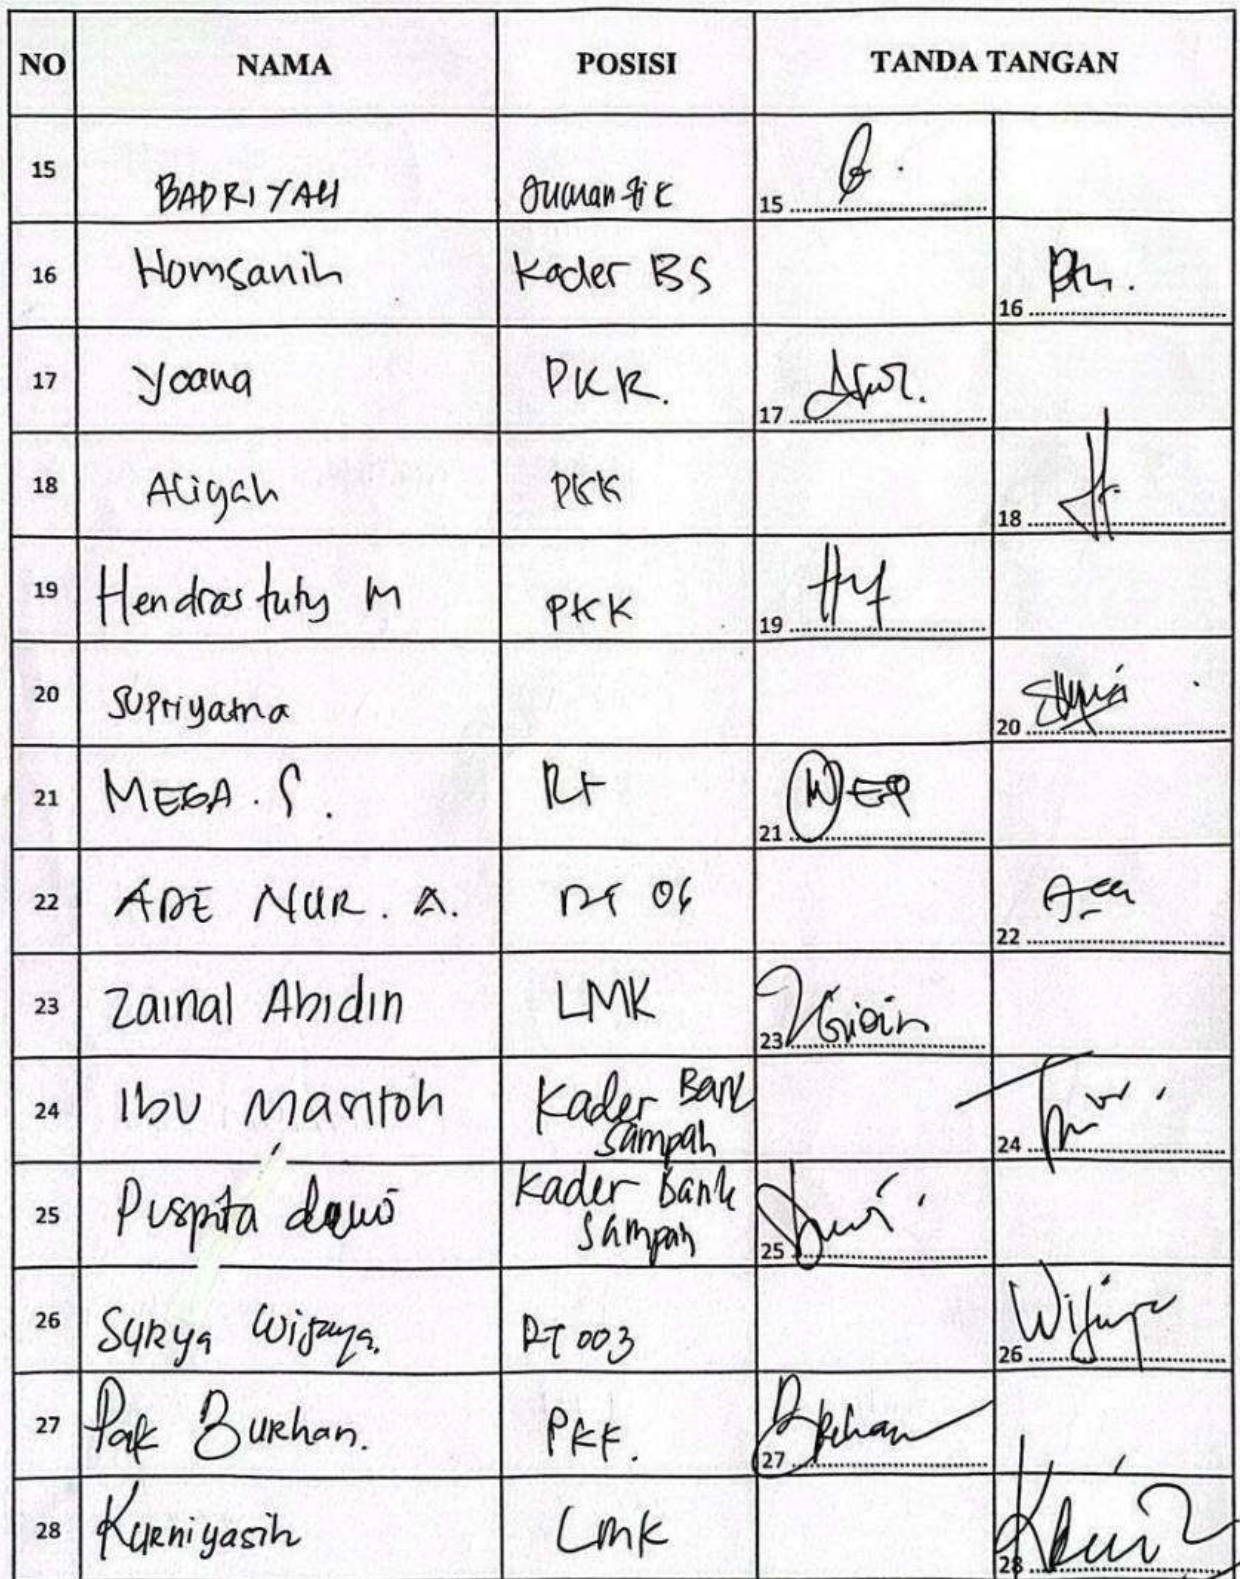 NO NAMA POSISI TANDA TANGAN
15 BADRIYAH Jumantik 15
16 Homsanih Kader BS 16
17 Yoana PKK. 17
18 Aliyah PKK 18
19 Hendrastuty M PKK 19
20 Supriyatna 20
21 MEGA. S. RT 21
22 ADE NUR. A. RT 06 22
23 Zainal Abidin LMK 23
24 Ibu Kader Bank
Sampah 24
25 Puspita dewi Kader Bank
Sampah 25
26 Surya Wijaya. RT 003 26 Wijaya
27 Pak Burhan. PKK. 27 Burhan
28 Kurniyasih LMK 28